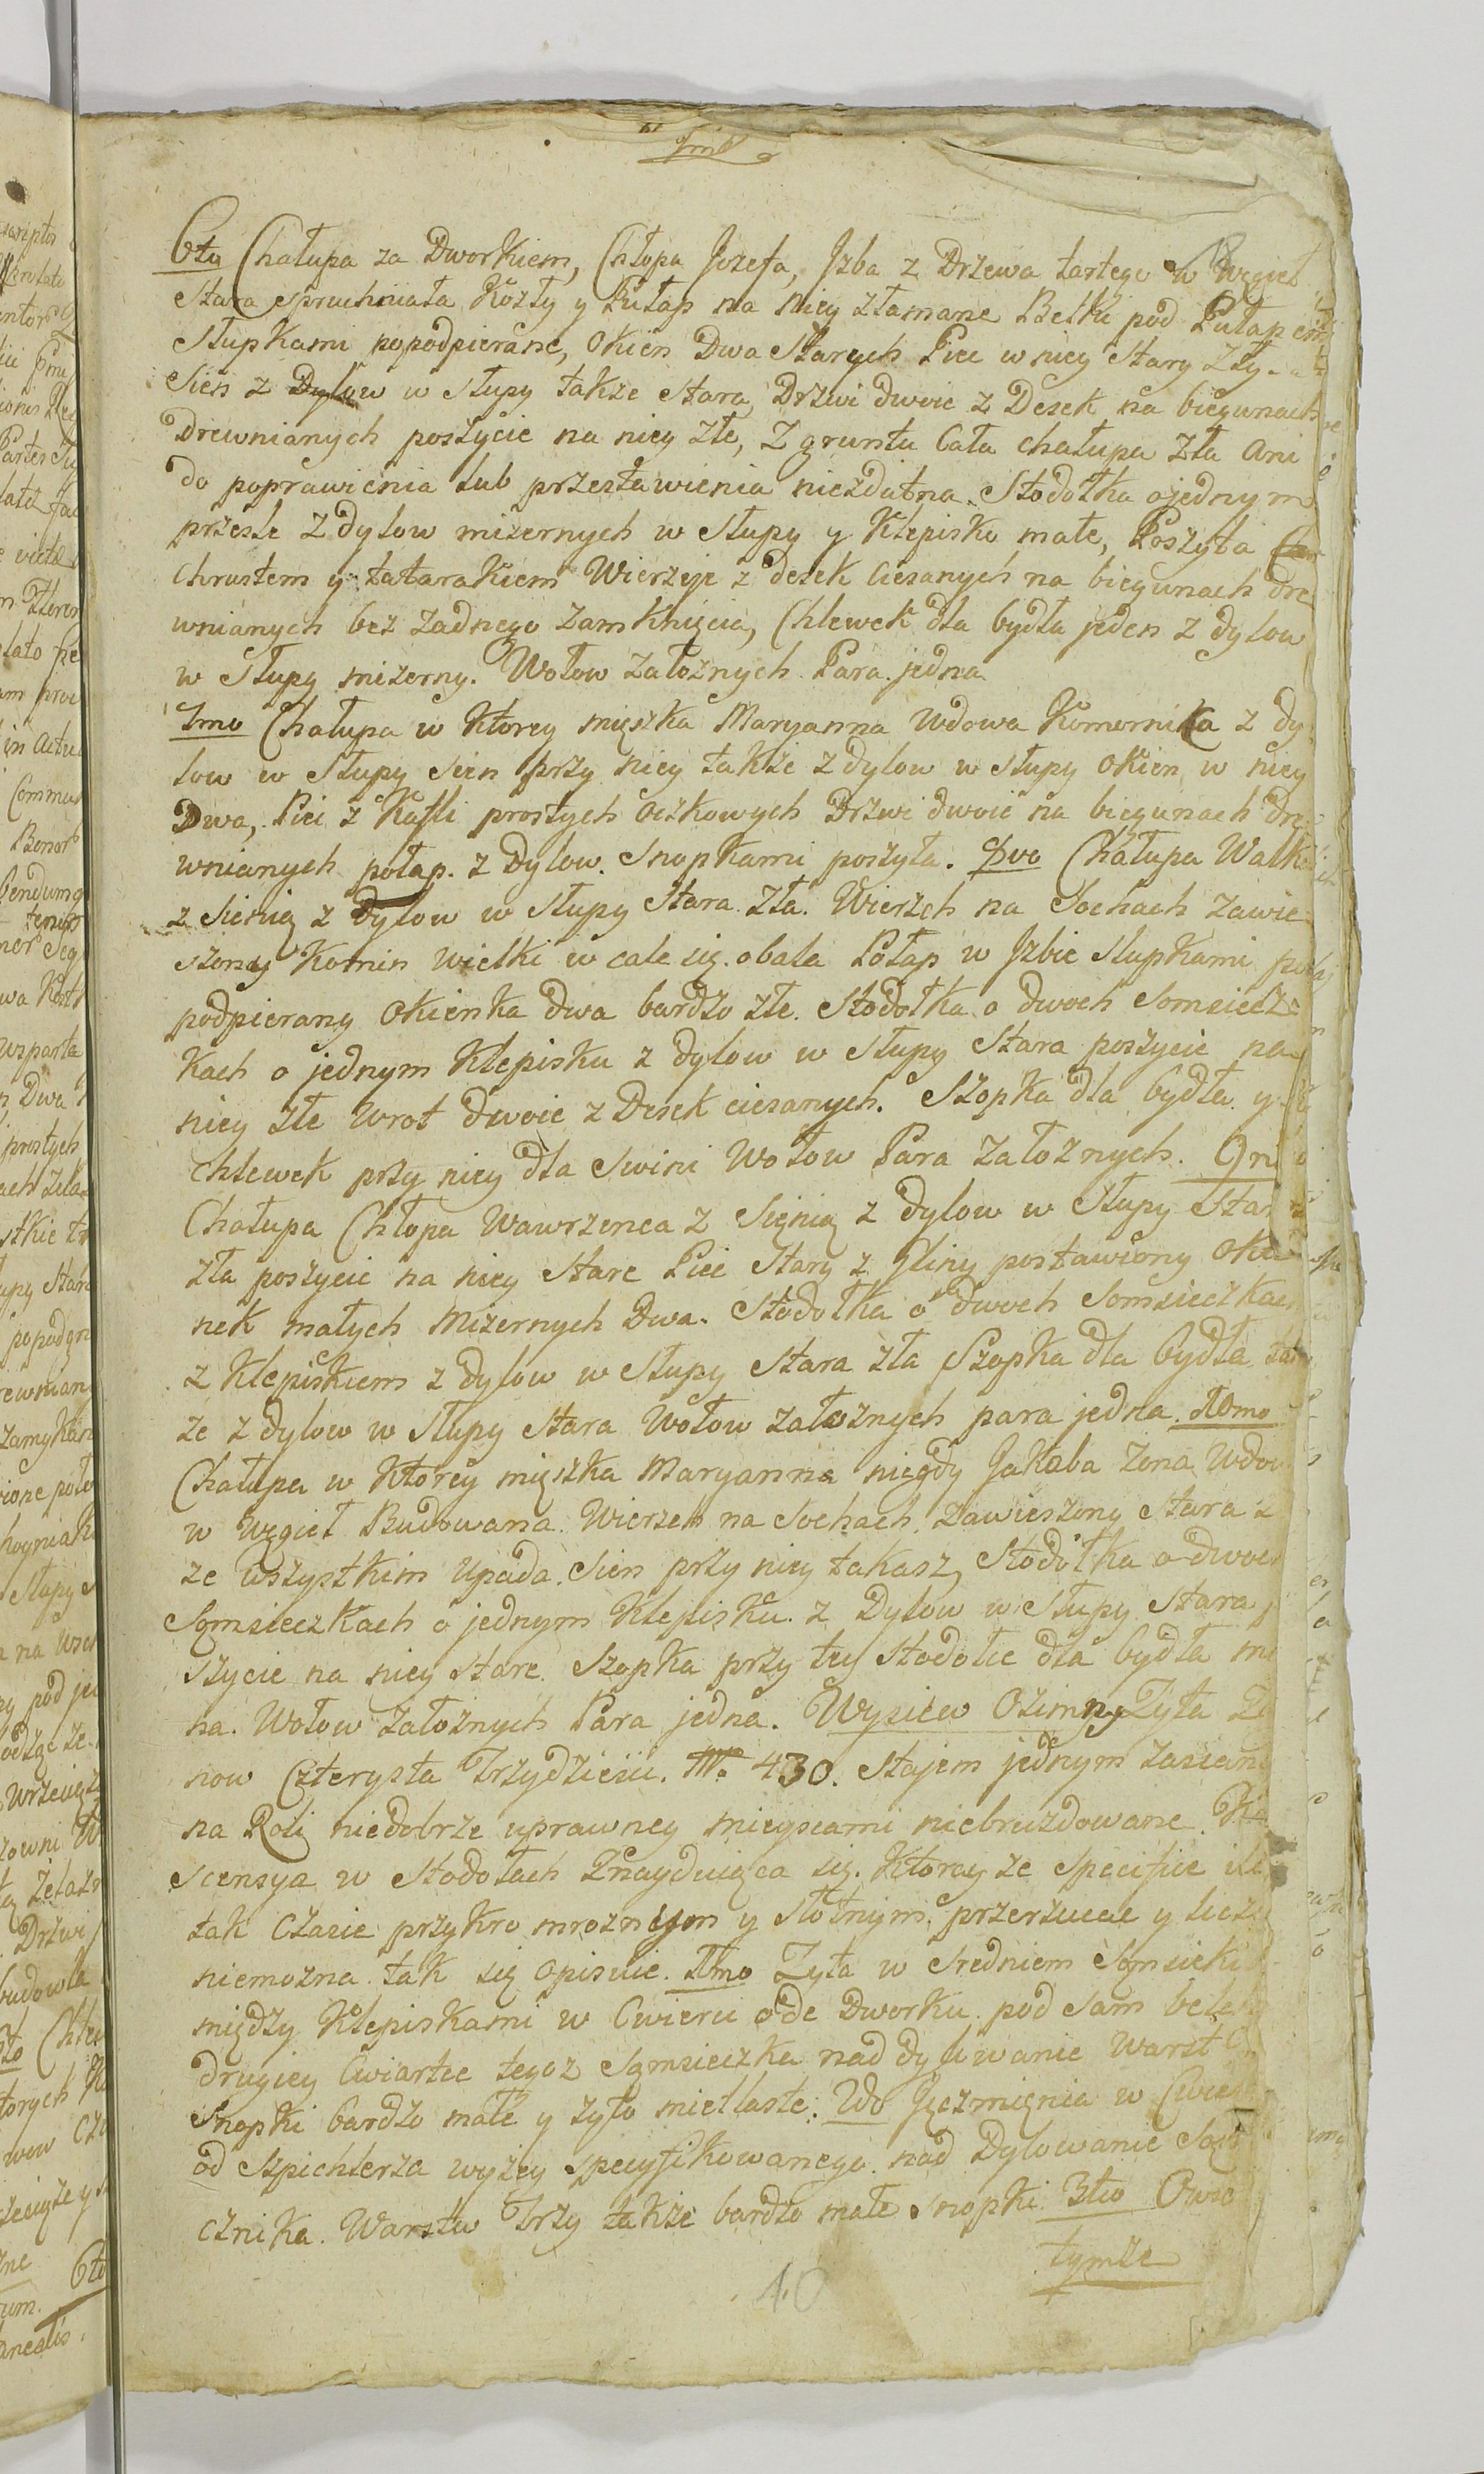 6to Chałupa za Dworkiem, Chłopa Jozefa, Jzba z Drzewa tartego w Węgieł
Stara spruchniała Kozły y Pułap na niey złamane Belki pod Pułapem
Słupkami popodpierane, Okien Dwa Starych Piec w niey Stary Zły
Sien z Dylow w Słupy także Stara, Drzwi dwoie z Desek na biegunach
Drewnianych poszycie na niey złe, Z gruntu Cała chałupa Zła Ani
do poprawienia lub przestawienia niezdatna. Stodołka o jednym
przesle z dylow mizernych w Słupy y Klepisko małe, Poszyta
Chrustem y tatarakiem Wierzeje z desek Ciesanych na biegunach dre
wnianych bez żadnego zamknięcia, Chlewek dla bydła jeden z dylow
w Słupy mizerny. Wołow załoznych Para jedna
7mo Chałupa w Ktorey mięszka Maryanna Wdowa Komornica z dy
low w Słupy Sien przy niey także z dylow w Słupy Okien w niey
Dwa, Piec z Kafli prostych oczkowych Drzwi dwoie na biegunach dre
wnianych połap z Dylow. Snopkami poszyta. 8vo Chałupa Walka
z Sienią z Dylow w Słupy Stara Zła. Wierzch na Sochach zawie
szony Komin wielki w cale się obala Połap w Jzbie Słupkami
podpierany Okienka dwa bardzo złe. Stodołka o dwoch Somsiecz
kach o jednym Klepisku z dylow w Słupy Stara poszycie na
niey złe Wrot dwoie z Desek ciesanych. Szopka dla bydła y
chlewek przy niey dla Swini Wołow Para załoznych. 9n
Chałupa Chłopa Wawrzenca z Sięnią z dylow w Słupy Star
zła poszycie na niey Stare Piec Stary z Gliny postawiony Okie
nek małych Mizernych Dwa. Stodołka o dwoch Somsieczkach
z Klepiskiem z dylow w Słupy Stara zła Szopka dla bydła tak
że z dylow w Słupy Stara Wołow załoznych para jedna. 10mo
Chałupa w Ktorey mięszka Maryanna niegdy Jakuba Zona Wdow
w Węgieł Budowana. Wierzch na Sochach Zawieszony Stara z
ze wszystkim upada. Sien przy niey takasz, Stodołka o dwoch
Somsieczkach o jednym Klepisku z Dylow w Słupy Stara
szycie na niey stare. Szopka przy tey Stodole dla bydła mi
na. Wołow załoznych Para jedna. Wysiew Ozimny Zyta Za
now Czterysta Trzydziesci. No 430. Stajem jednym zasiane
na Roli niedobrze uprawney mieyscami niebruzdowane. Kre
scensya w Stodołach Znayduięca się. Ktorey ze specifice ile
tak czasie przykro mroznym y słotnym przerzucac y liczy
niemozna tak się opisuie. 1mo Zyta w Srednim Somsieku
między Klepiskami w Cwierci ode Dworku pod Sam belek
drugiey Cwiartce tegoz Sąmsieczka nad dyliwanie Warst
Snopki bardzo małe y zyto mietlaste. 2do Jęczmięnia w Cwier
od Szpichlerza wyżey specyfikowanego nad Dylowanie Sąsie
cznika. Warstw Trzy także bardzo małe snopki. 3tio Owie
tymże
40